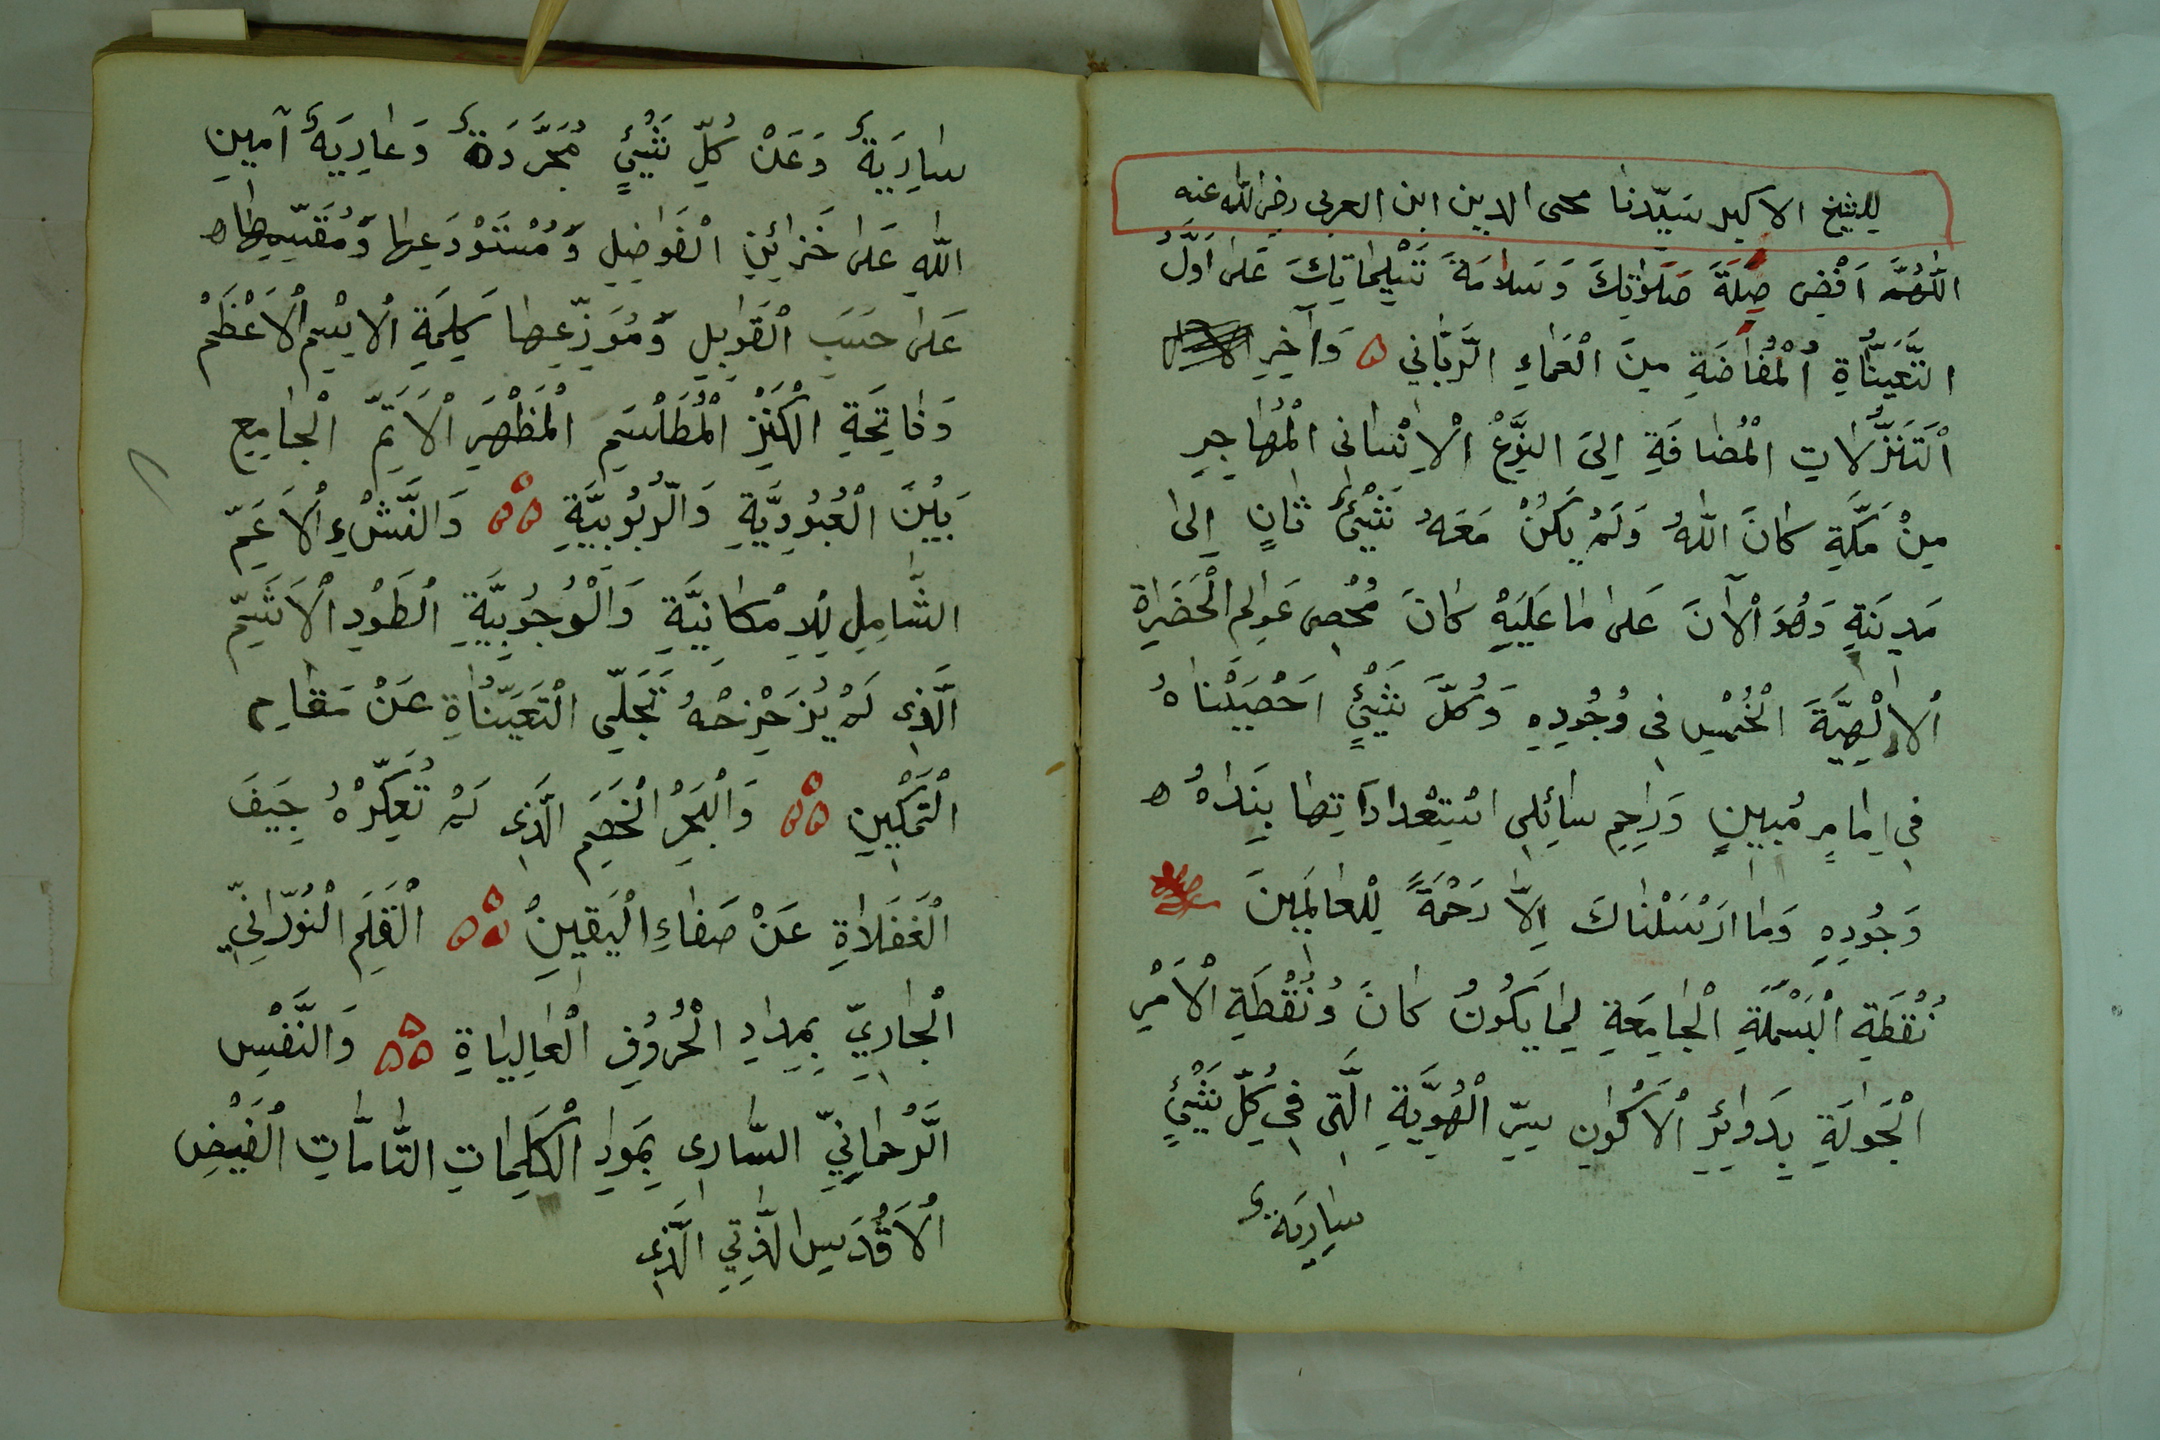 للشيخ الاكبر سيّدنا محى الدين ابن العربى رضى الله عنه
اَللّٰهُمَّ اَفْضِ صِلَةَ صَلَوٰتِكَ وَسَلامَةَ تَسْلِيمَاتِكَ عَلَى اَوَّلِ
التَّعَيُّنَاةِ اَلْمُفَاضَةِ مِنَ الْعَمَاءِ الرَّبَّانِي ۵ وَآخِرِ
اَلتَنَزُّلَاتِ الْمُضَافَةِ اِلىَ النَّوْعِ اْلاِنْسَانِى الْمُهَاجِرِ
مِنْ مَكَّةِ كَانَ اللّٰهُ وَلَمْ يَكُنْ مَعَهُ شَيْئٌ ثَانٍ اِلىٰ
مَدِينَةِ وَهُوَ اْلآنَ عَلىٰ مَا عَلَيْهِ كَانَ مُحْصِى عَوٰالِمِ الْحَضَرٰاةِ
اْلاِلٰهِيَّةَ الْخُمْسِ فِى وُجُودِهِ وَكُلَّ شَيْئٍ اَحْصَيْنَاهُ
فِى اِمَامٍ مُبِينٍ وَرَاحِمِ سَائِلِى اسْتِعْدَادَاتِهَا بِنَدَاهُ ه
وَجُودِهِ وَمَا اَرْسَلْنَاكَ اِلَّا رَحْمَةً لِلْعَالَمِينَ
نُقْطَةِ الْبَسْمَلَةِ الْجَامِعَةِ لِمَا يَكُونُ كَانَ وُنُقْطَةِ اْلاَمْرِ
الْجَوَالَةِ بِدَوَائِرِ اْلاَكْوٰانِ سِرِّ الْهُوِيَّةِ الَّتِى فِى كُلِّ شَيْئٍ
سَارِيَةٌ
سَارِيَةٌ وَعَنْ كُلِّ شَيْئٍ مُجَرَّدَةٌ وَعَارِيَةٌ آمِينِ
اللّٰهِ عَلىٰ خَزَائِنِ الْفَوَاضِلِ وَمُسْتَوْدَعِهَا وَمُقَسِّمِهَا ه
عَلىٰ حَسَبِ الْقَوَابِلِ وَمُوَزِّعِهَا كَلِمَةِ اْلاِسْمِ اْلاَعْظَمْ
وَفَاتِحَةِ الْكَنْزِ الْمُطَلْسَمِ الْمَظْهَرِ اْلاَتَمِّ الْجَامِعِ
بَيْنَ الْعُبُودِيَّةِ وَالرُّبُوبِيَّةِ ۵۵۵ وَالنَّشْءِ اْلاَعَمِّ
الشَّامِلِ لِلاِمْكَانِيَّةِ وَالْوُجُوبِيَّةِ الطَوْدِ اْلاَشَمِّ
الَّذِى لَمْ يُزَحْزِحْهُ تَجَلِّى التَعَيُّنَاةِ عَنْ مَقَامِ
التَمْكِينِ ۵۵۵ وَالْبَحْرِ الْخَضِمِ الَّذِى لَمْ تُعَكِّرْهُ جِيَفَ
الْغَفَلَاةِ عَنْ صَفَاءِ الْيَقِينِ ۵۵۵ الْقَلَمِ النُّورَانِيِّ
الْجَارِيِّ بِمِدَادِ الْحُرُوفِ الْعَالِيَاةِ ۵۵۵ وَالنَّفْسِ
الرَّحْمَانِيِّ السَّارِى بِمَوَادِ الْكَلِمَاتِ التَّامَّاتِ الْفَيْضِ
اْلاَقْدَسِ الذَّٰتِيِ الَّذِى